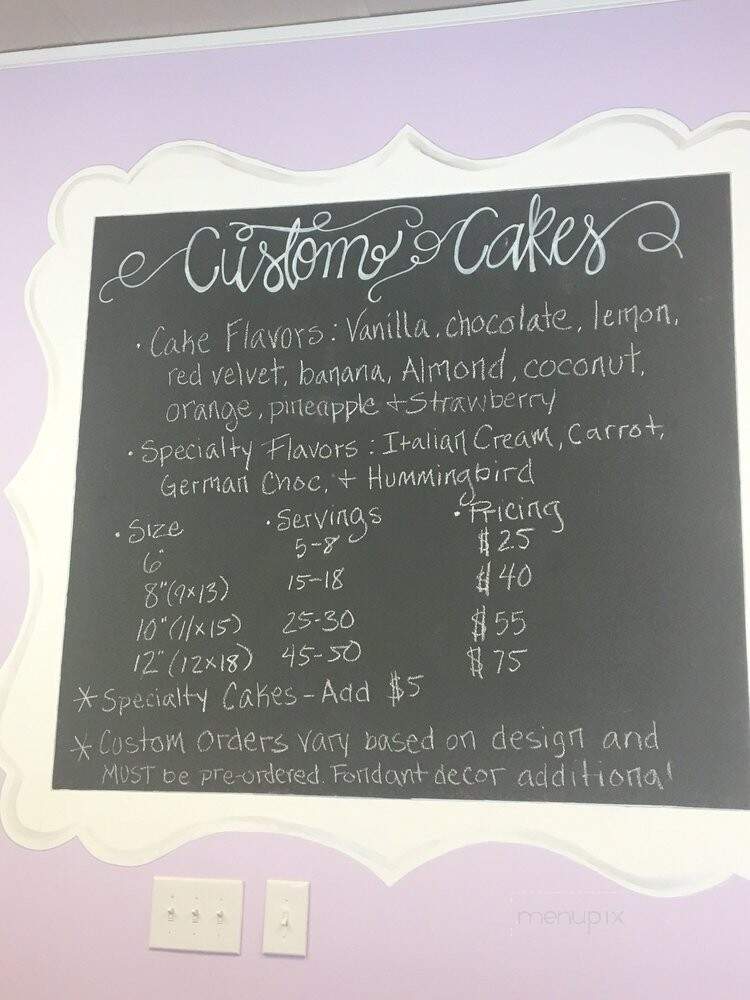 Custom Cakes
• Cake Flavors: Vanilla, chocolate, lemon,
red velvet, banana, Almond, coconut,
orange, pineapple + Strawberry
• Specialty Flavors: Italian Cream, Carrot,
German Choc, + Hummingbird
• Size • Servings • Pricing
6" 5-8 $25
8" (9x13) 15-18 $40
10" (11x15) 25-30 $55
12" (12x18) 45-50 $75
* Specialty Cakes - Add $5
* Custom Orders vary based on design and
MUST be pre-ordered. Fondant decor additional
menupix